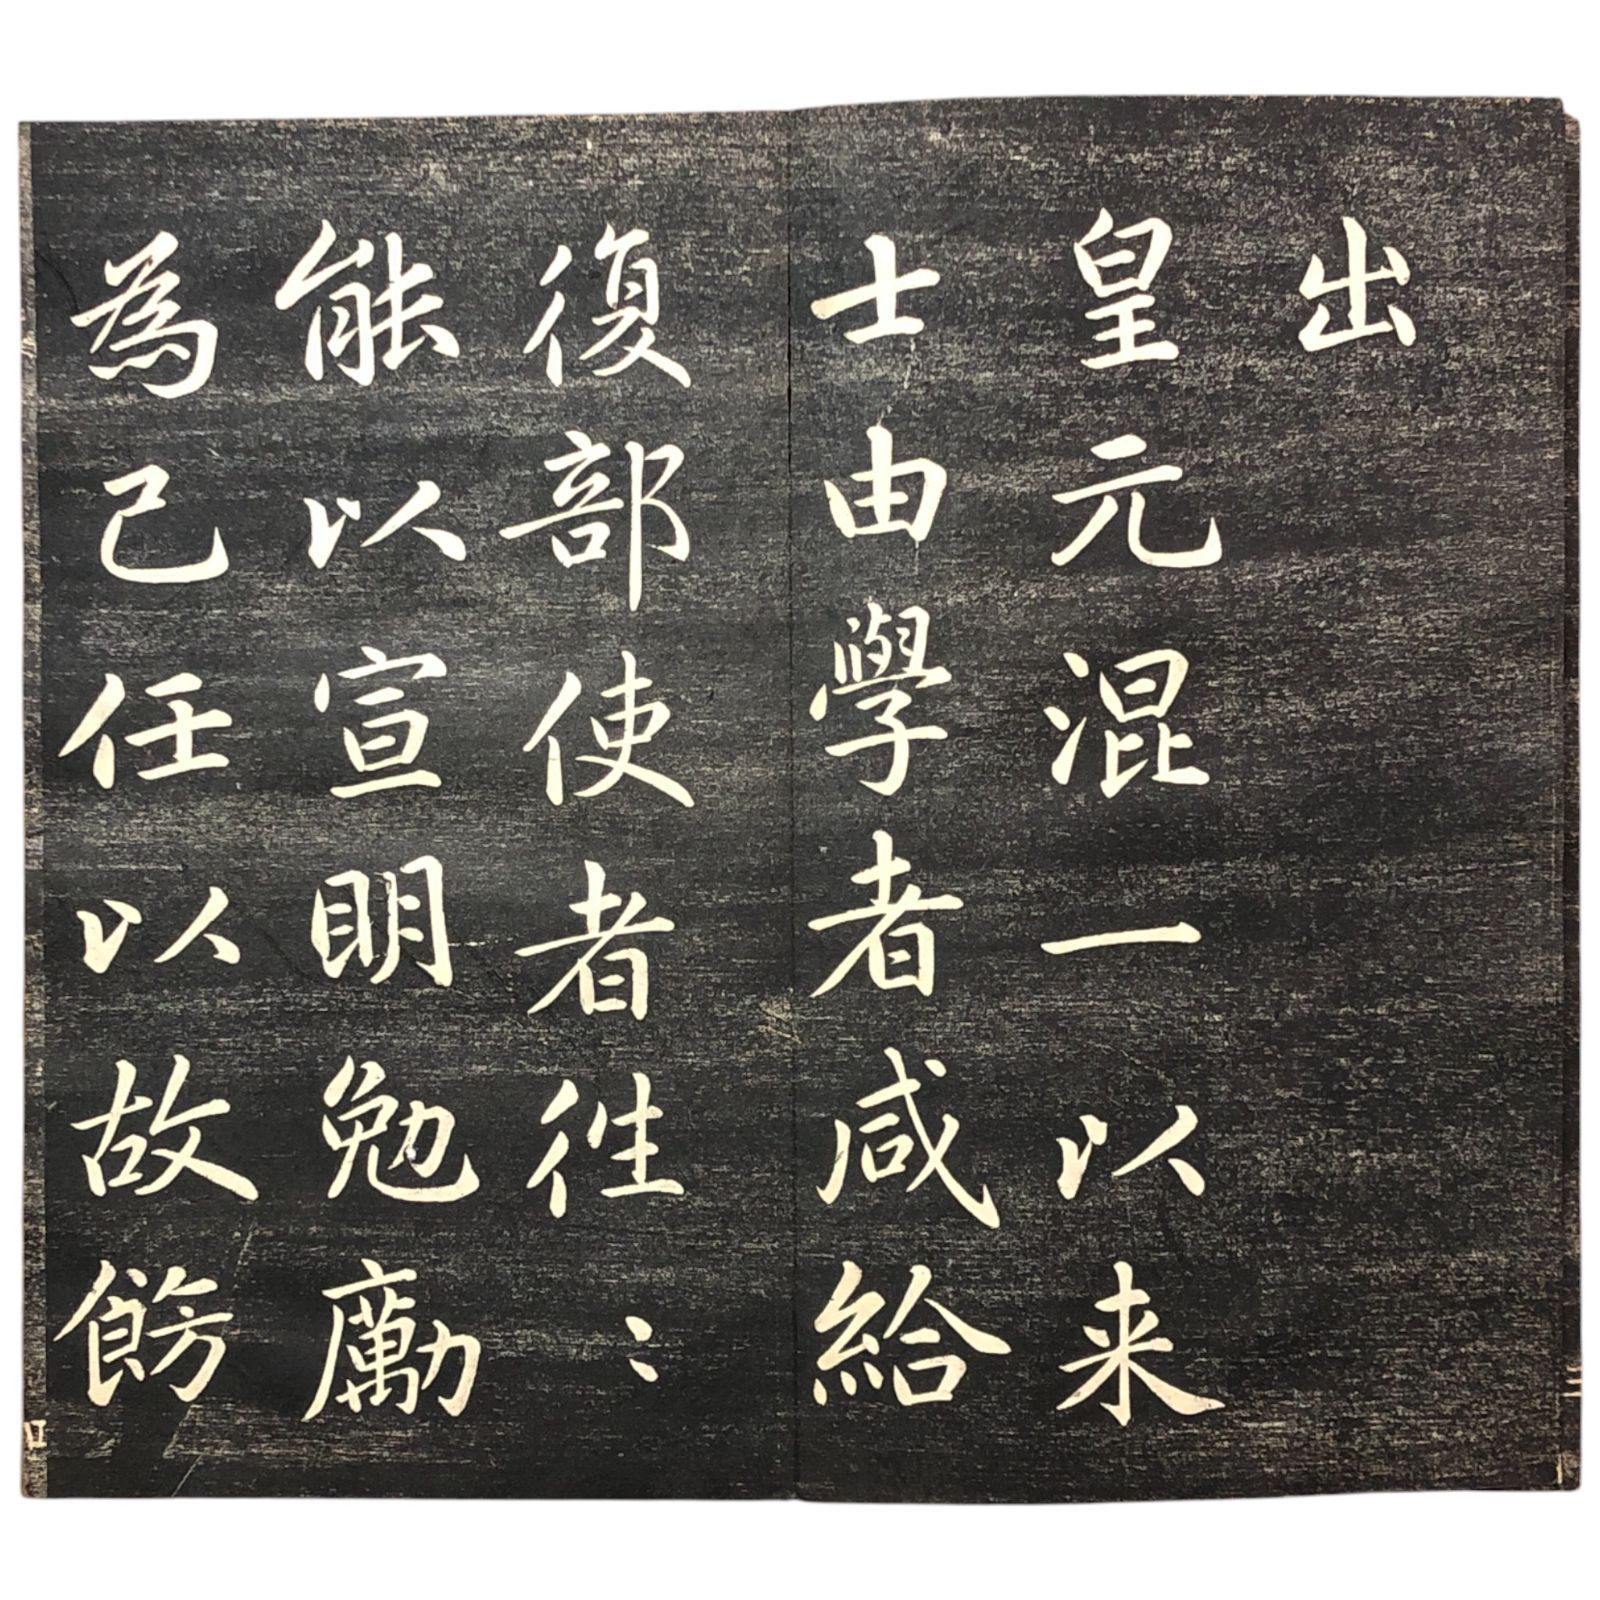 出
皇元混一以来
士由學者咸給
復部使者徃〻
能以宣明勉勵
為己任以故餝